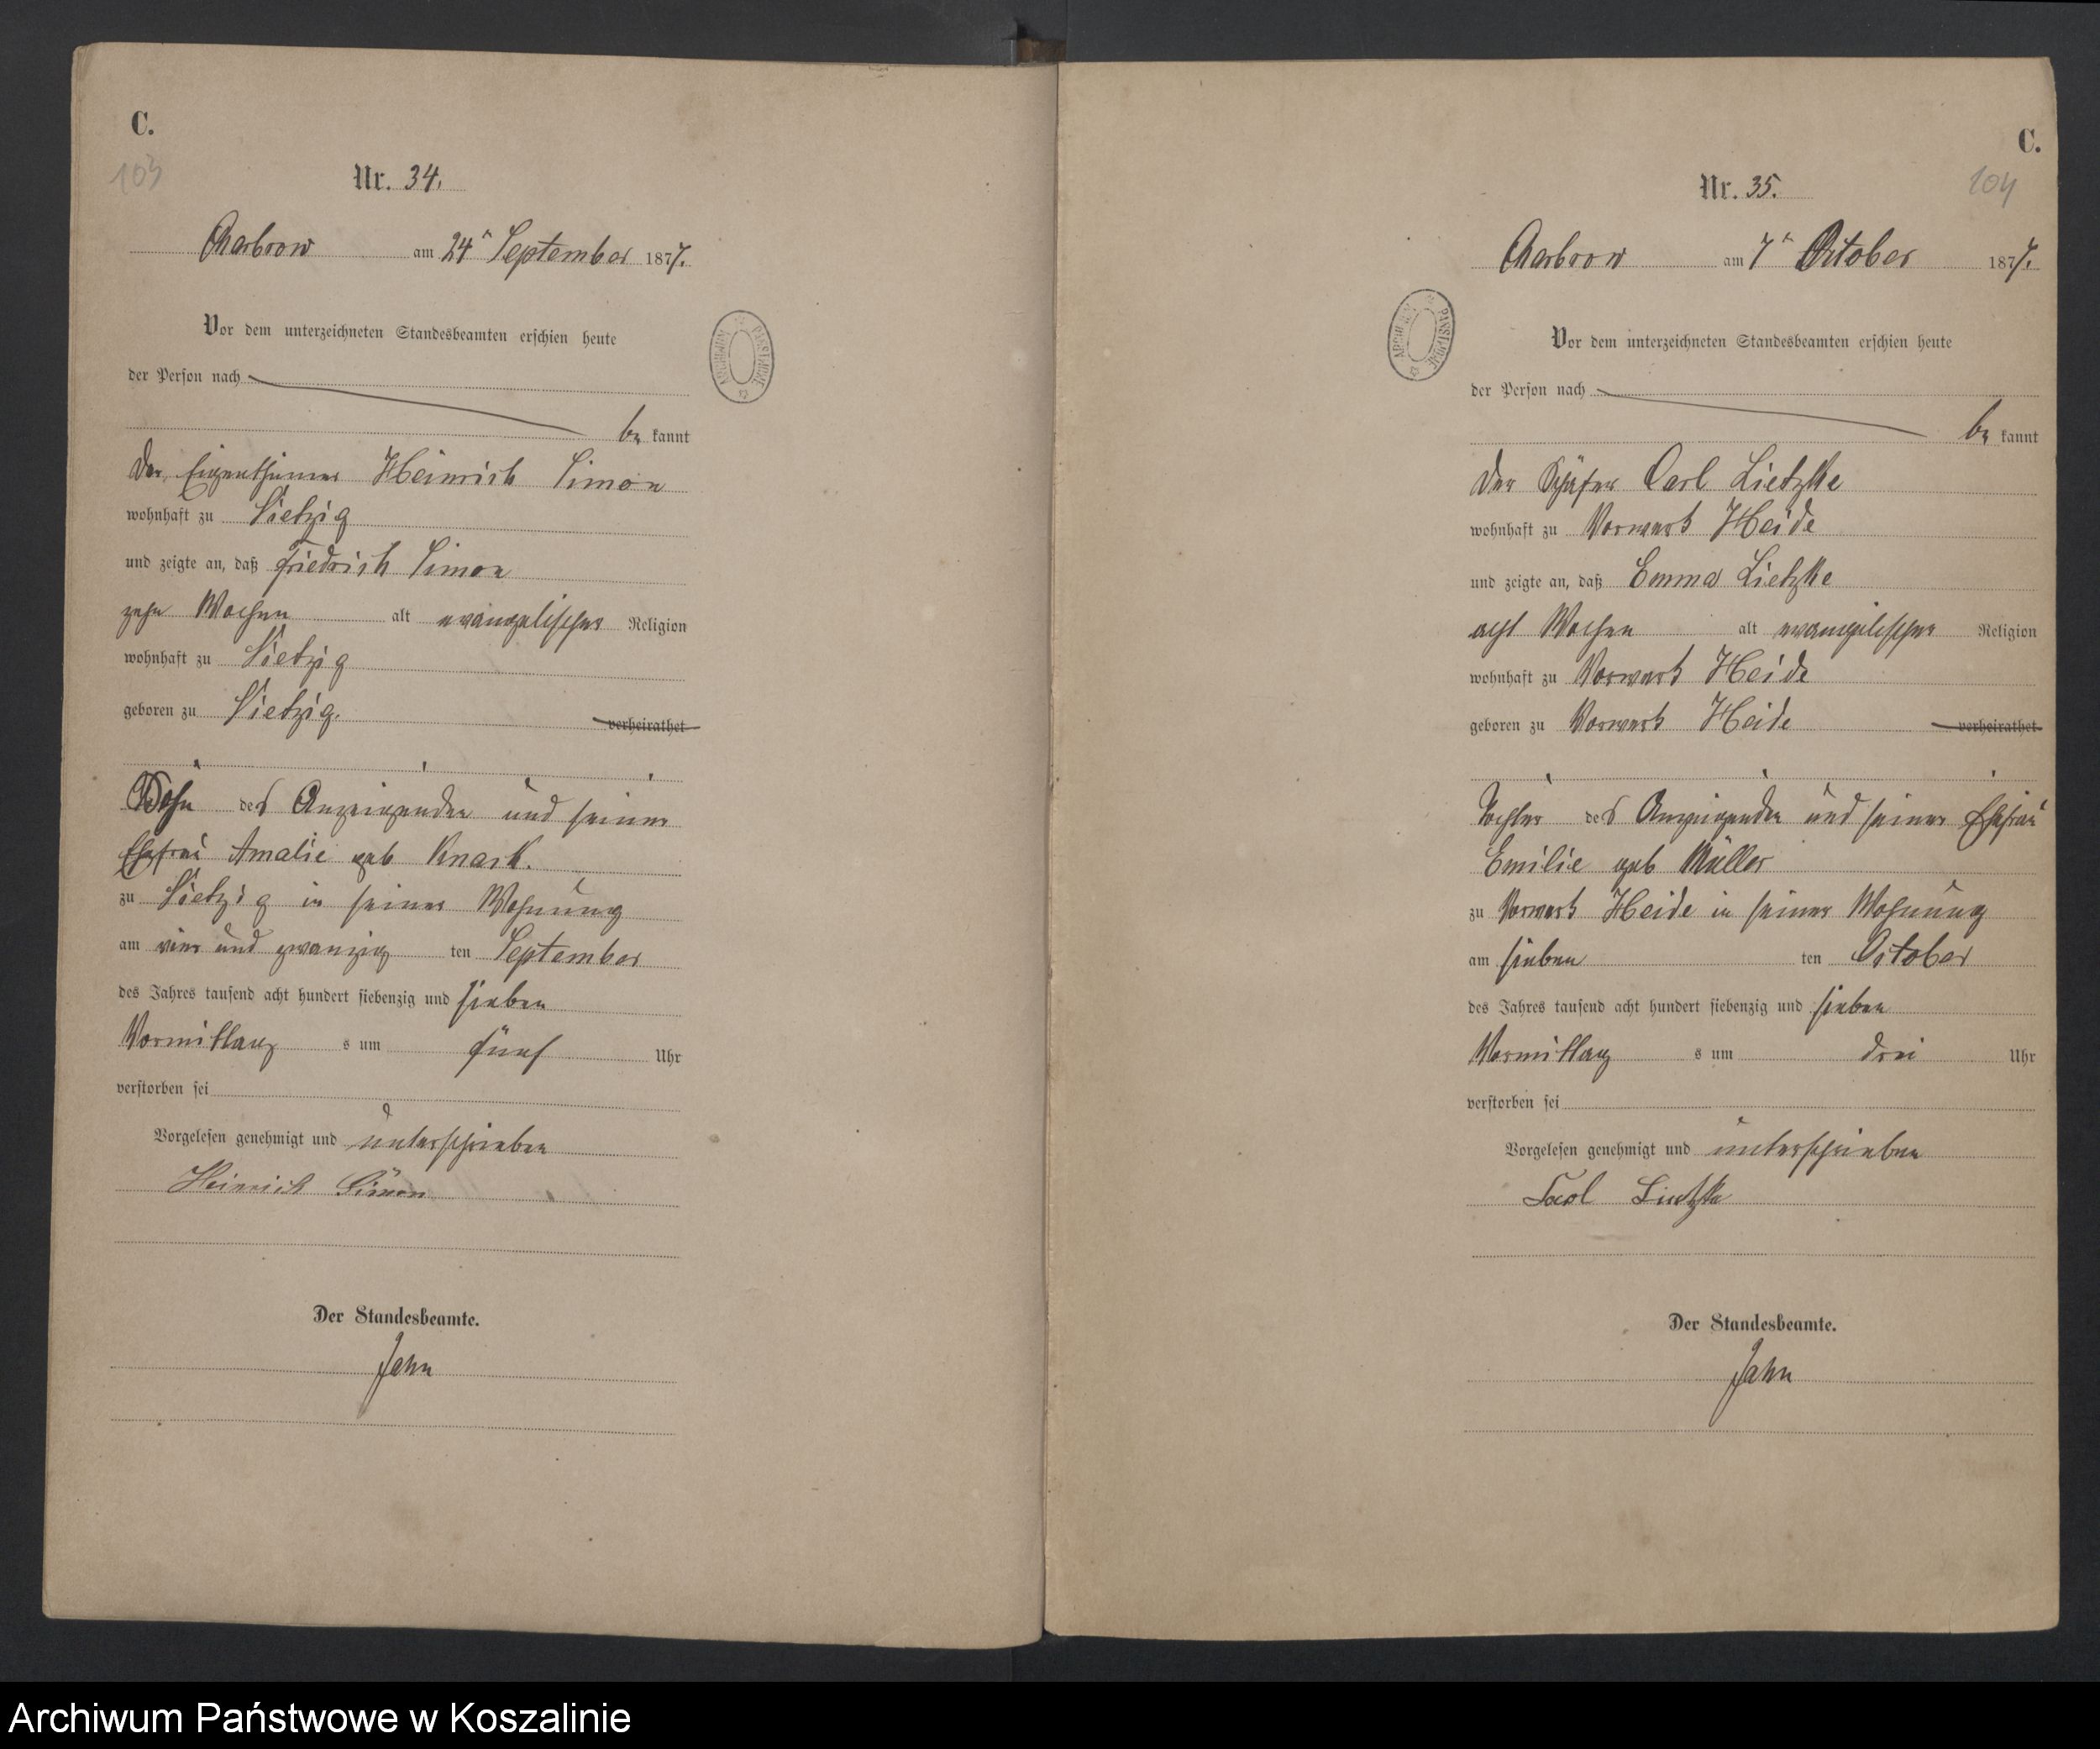 C.
103
Nr. 34.
Charbrow am 24t September 1877.
Vor dem unterzeichneten Standesbeamten erschien heute
der Person nach
be kannt
Der Eigenthümer Heinrich Simon
wohnhaft zu Sietzig
und zeigte an, daß Friedrich Simon
zehn Wochen alt evangelischer Religion
wohnhaft zu Sietzig
geboren zu Sietzig. verheirathet
Sohn des Anzeigenden und seiner
Ehefrau Amalie geb Knack.
zu Sietzig in seiner Wohnung
am vier und zwanzig ten September
des Jahres tausend acht hundert siebenzig und sieben
Vormittag s um fünf Uhr
verstorben sei
Vorgelesen genehmigt und unterschrieben
Heinrich Simon
Der Standesbeamte.
Jahn
ARCHIWUM PAŃSTWOWE
C.
104
Nr. 35.
Charbrow am 7t October 1877.
Vor dem unterzeichneten Standesbeamten erschien heute
der Person nach
be kannt
Der Schäfer Carl Lietzke
wohnhaft zu Vorwerk Heide
und zeigte an, daß Emma Lietzke
acht Wochen alt evangelischer Religion
wohnhaft zu Vorwerk Heide
geboren zu Vorwerk Heide verheirathet
Tochter des Anzeigenden und seiner Ehefrau
Emilie geb Müller
zu Vorwerk Heide in seiner Wohnung
am sieben ten October
des Jahres tausend acht hundert siebenzig und sieben
Vormittag s um drei Uhr
verstorben sei
Vorgelesen genehmigt und unterschrieben
Carl Lietzke
Der Standesbeamte.
Jahn
ARCHIWUM PAŃSTWOWE
Archiwum Państwowe w Koszalinie